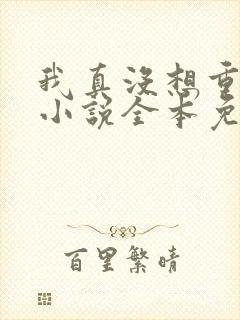 我真没想重
小说全本免
百里繁晴